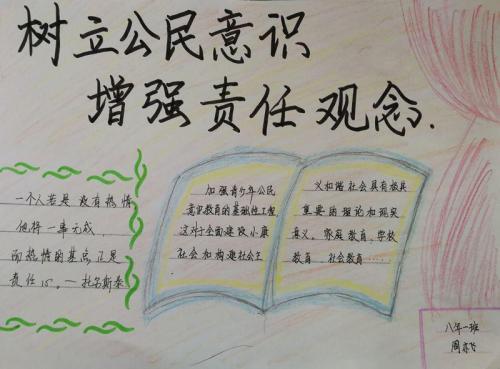 树立公民意识
增强责任观念.
一个人若是没有热情
他将一事无成
而热情的基点正是
责任心。—托尔斯泰
加强青少年公民
意识教育的基础性工程
这对于全面建设小康
社会和构建社会主
义和谐社会具有极其
重要的理论和现实
意义。家庭教育、学校
教育、社会教育……
八年一班
周亦飞